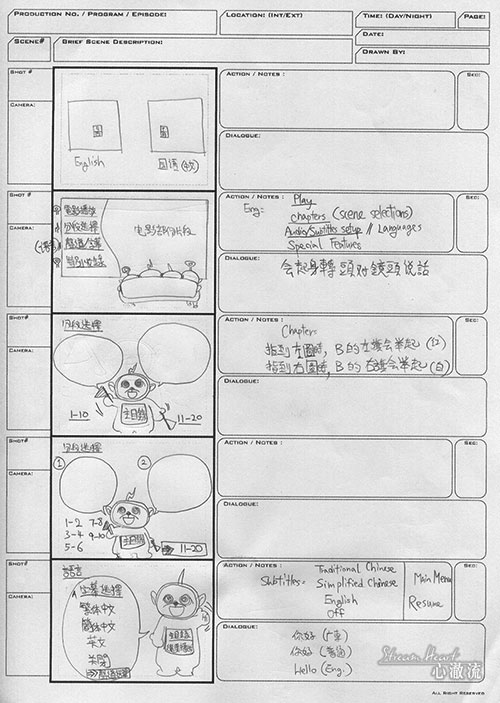 PRODUCTION NO. / PROGRAM / EPISODE:
LOCATION: (INT/EXT)
TIME: (DAY/NIGHT)
PAGE:
SCENE#
BRIEF SCENE DESCRIPTION:
DATE:
DRAWN BY:
SHOT #
CAMERA:
English
国语 (中文)
ACTION / NOTES :
SEC:
DIALOGUE:
SHOT #
CAMERA:
分段选择
ACTION / NOTES :
Eng:
Play
chapters (scene selections)
Audio/Subtitles setup // Languages
Special Features
SEC:
DIALOGUE:
会起身轉頭对鏡頭说話
SHOT#
CAMERA:
分段选擇
1-10
主目錄
11-20
ACTION / NOTES :
Chapter:
指到左圖時, B的左邊会举起 (12)
指到右圖時, B的右邊会举起 (白)
SEC:
DIALOGUE:
SHOT#
CAMERA:
分段选擇
1
2
1-2 7-8
3-4 9-10
5-6
11-20
ACTION / NOTES :
SEC:
DIALOGUE:
SHOT#
CAMERA:
語言
字幕选擇
繁体中文
简体中文
英文
关闭
ACTION / NOTES :
Subtitles:
Traditional Chinese
Simplified Chinese
English
Off
Main Menu
Resume
DIALOGUE:
你好 (广东)
你好 (普通)
Hello (Eng.)
Stream Heart
心澈流
ALL RIGHT RESERVED